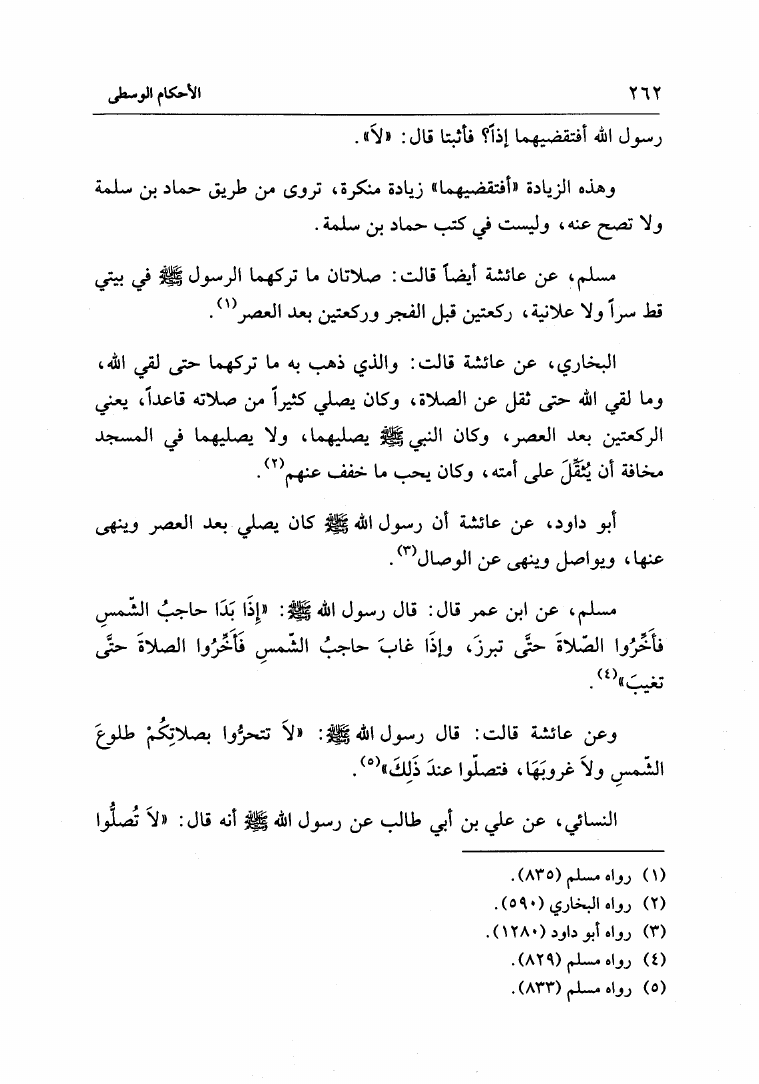 ٢٦٢ الأحكام الوسطى
رسول الله أفتقضيهما إذاً؟ فأثبتا قال: «لاَ».
وهذه الزيادة «أفتقضيهما» زيادة منكرة، تروى من طريق حماد بن سلمة
ولا تصح عنه، وليست في كتب حماد بن سلمة.
مسلم، عن عائشة أيضاً قالت: صلاتان ما تركهما الرسول ﷺ في بيتي
قط سراً ولا علانية، ركعتين قبل الفجر وركعتين بعد العصر(١).
البخاري، عن عائشة قالت: والذي ذهب به ما تركهما حتى لقي الله،
وما لقي الله حتى ثقل عن الصلاة، وكان يصلي كثيراً من صلاته قاعداً، يعني
الركعتين بعد العصر، وكان النبي ﷺ يصليهما، ولا يصليهما في المسجد
مخافة أن يُثَقِّلَ على أمته، وكان يحب ما خفف عنهم(٢).
أبو داود، عن عائشة أن رسول الله ﷺ كان يصلي بعد العصر وينهى
عنها، ويواصل وينهى عن الوصال(٣).
مسلم، عن ابن عمر قال: قال رسول الله ﷺ: «إِذَا بَدَا حاجبُ الشّمسِ
فأَخِّرُوا الصّلاةَ حتَّى تبرزَ، وإذَا غابَ حاجبُ الشّمسِ فَأَخِّرُوا الصلاةَ حتَّى
تغيبَ»(٤).
وعن عائشة قالت: قال رسول الله ﷺ: «لاَ تتحرُّوا بصلاتِكُمْ طلوعَ
الشّمسِ ولاَ غروبَهَا، فتصلّوا عندَ ذَلِكَ»(٥).
النسائي، عن علي بن أبي طالب عن رسول الله ﷺ أنه قال: «لاَ تُصلُّوا
(١) رواه مسلم (٨٣٥).
(٢) رواه البخاري (٥٩٠).
(٣) رواه أبو داود (١٢٨٠).
(٤) رواه مسلم (٨٢٩).
(٥) رواه مسلم (٨٣٣).